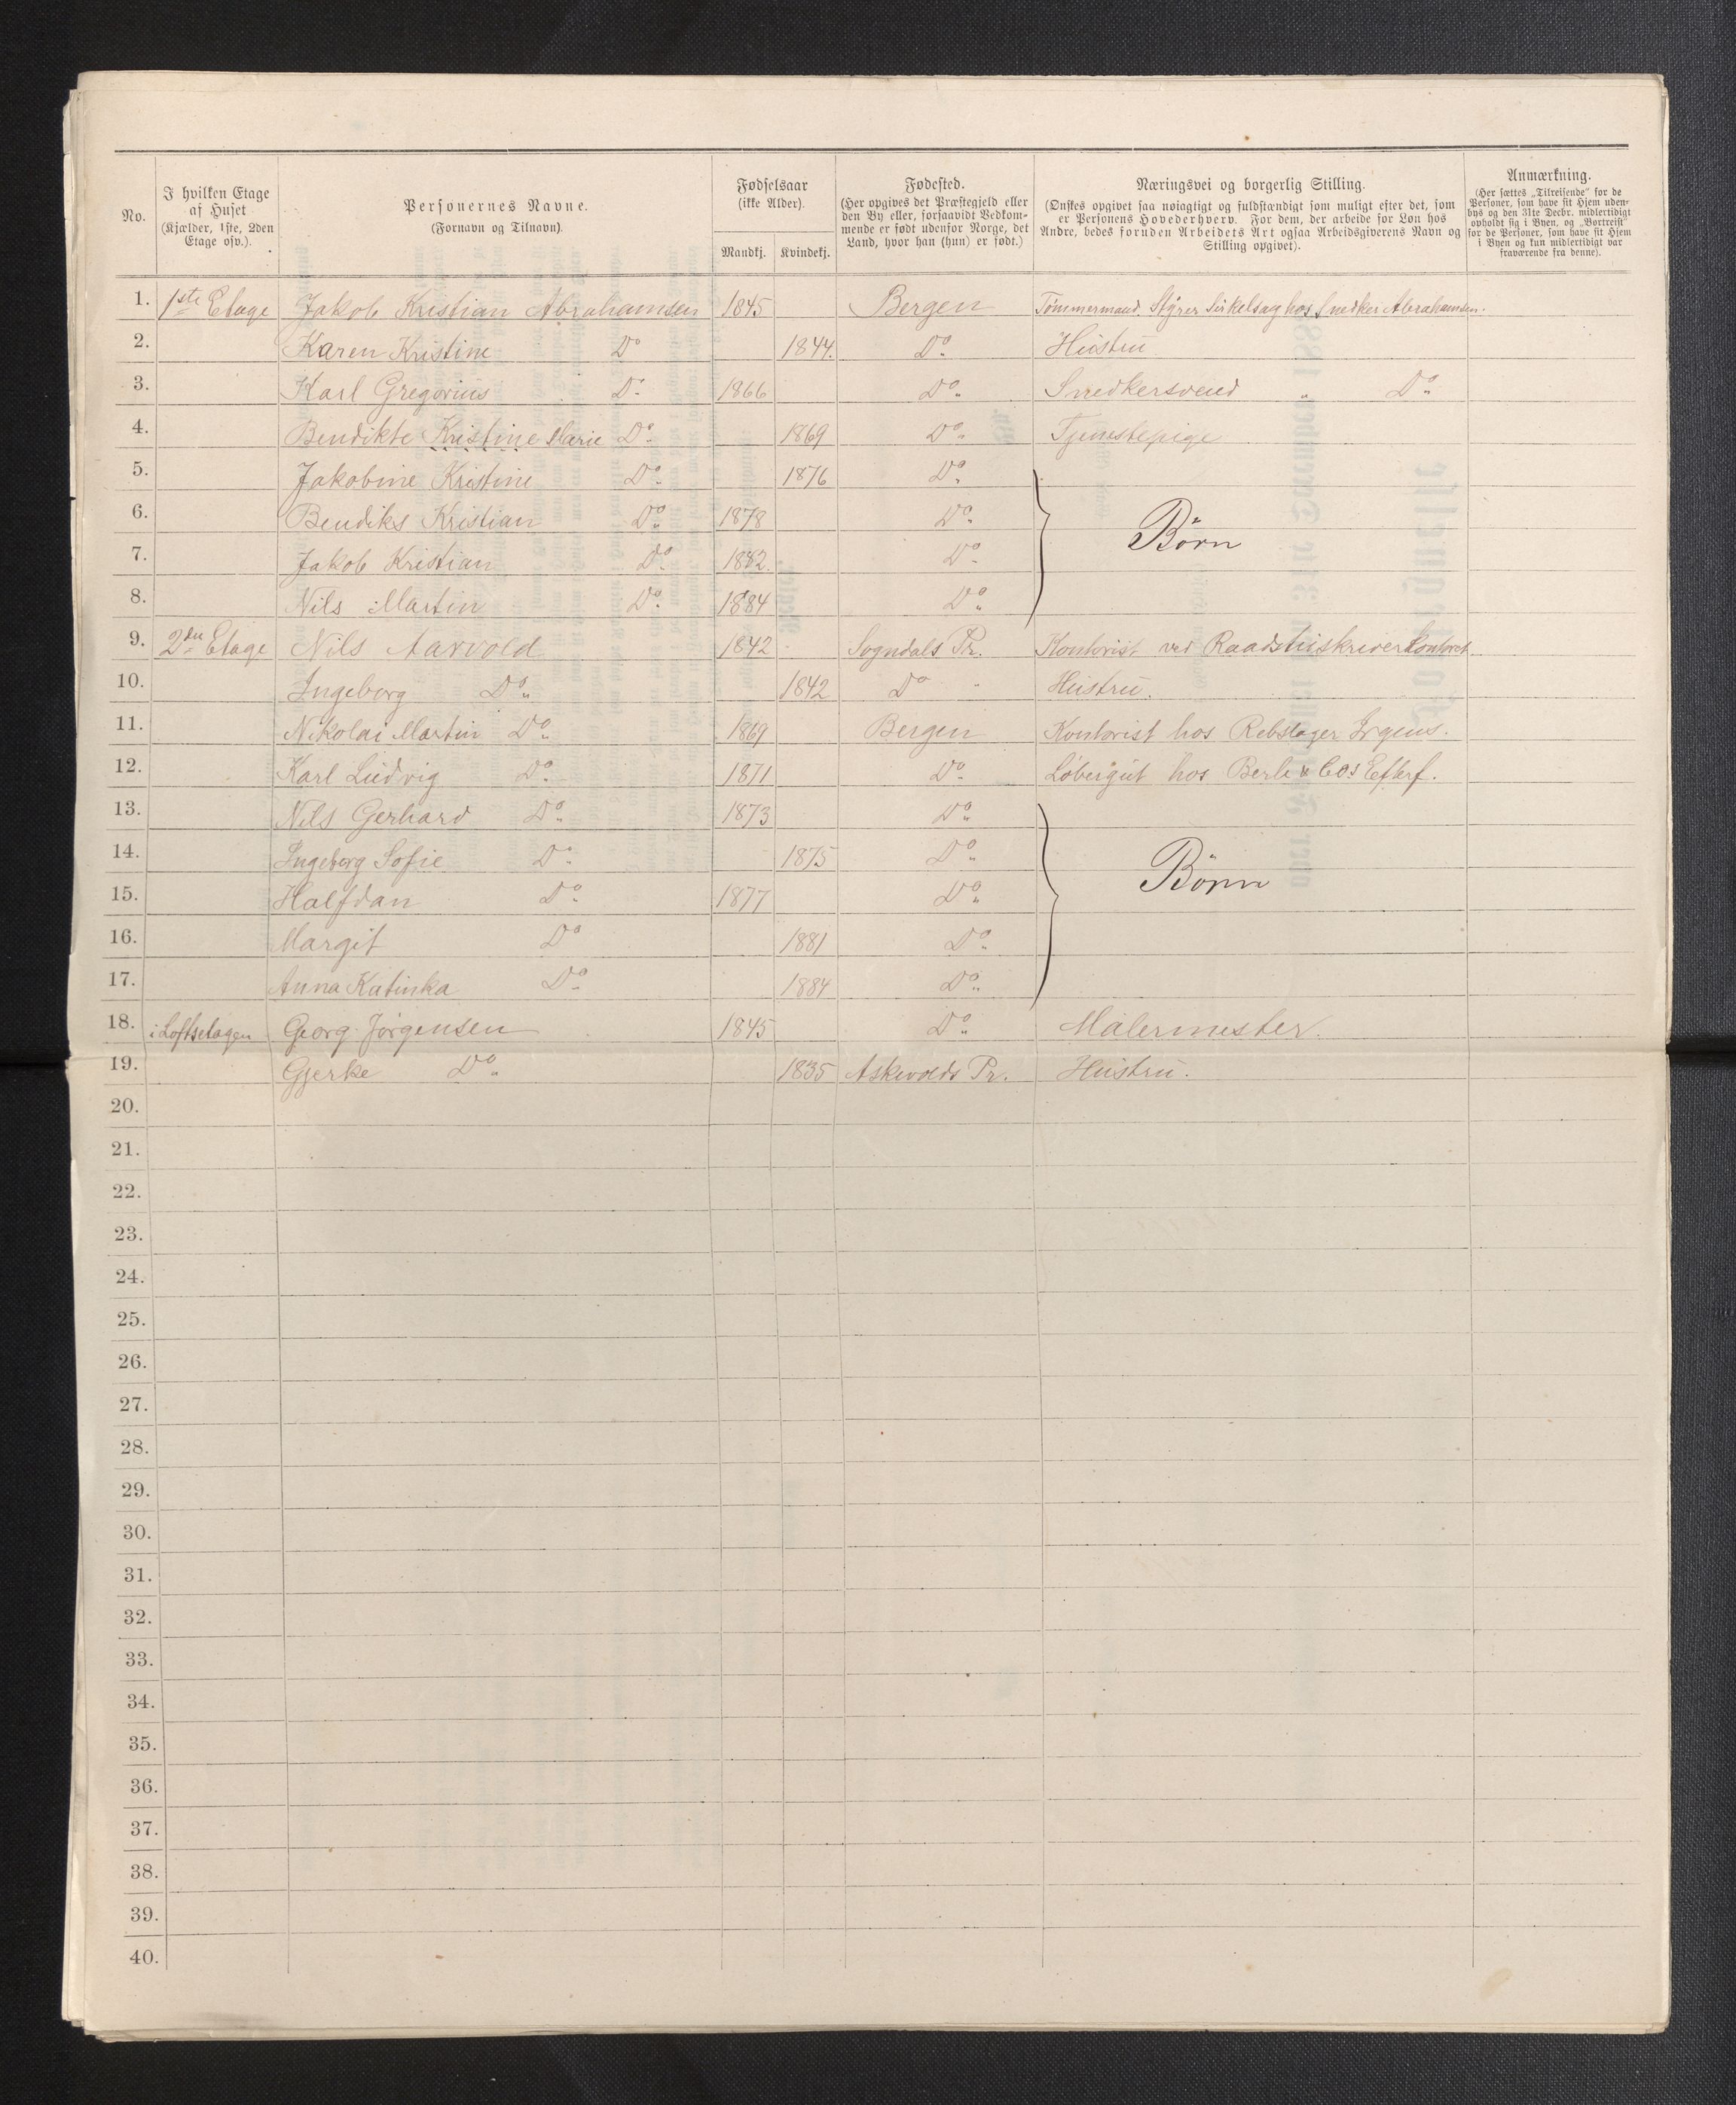 No.
I hvilken Etage af Huset (Kjælder, 1ste, 2den Etage osv.).
Personernes Navne. (Fornavn og Tilnavn).
Fødselsaar (ikke Alder).
Mandkj. Kvindekj.
Fødested. (Her opgives det Præstegjeld eller den By eller, forsaavidt Vedkommende er født udenfor Norge, det Land, hvor han (hun) er født.)
Næringsvei og borgerlig Stilling. (Ønskes opgivet saa nøiagtigt og fuldstændigt som muligt efter det, som er Personens Hovederhverv. For dem, der arbeide for Løn hos Andre, bedes foruden Arbeidets Art ogsaa Arbeidsgiverens Navn og Stilling opgivet).
Anmærkning. (Her sættes „Tilreisende" for de Personer, som have sit Hjem udenbys og den 31te Decbr. midlertidigt opholdt sig i Byen, og „Bortreist" for de Personer, som have sit Hjem i Byen og kun midlertidigt var fraværende fra denne).
1. 1ste Etage Jakob Kristian Abrahamsen 1845 Bergen Tömmermand. Styrer Sirkelsag hos Snedker Abrahamsen.
2. Karen Kristine Do 1844. Do Hustru
3. Karl Gregorius Do 1866 Do Snedkersvend " Do
4. Bendikte Kristine Marie Do 1869 Do Tjenestepige
5. Jakobine Kristine Do 1876 Do
6. Bendiks Kristian Do 1878 Do Börn
7. Jakob Kristian Do 1882 Do
8. Nils Martin Do 1884 Do
9. 2den Etage Nils Aarvold 1842 Sogndals Pr. Kontorist ved Raadstuskriverkontoret
10. Ingeborg Do 1842 Do " Hustru.
11. Nikolai Martin Do 1869 Bergen Kontorist hos Rebslager Irgens.
12. Karl Ludvig Do 1871 Do Löbergut hos Berle & Cos Efterf.
13. Nils Gerhard Do 1873 Do
14. Ingeborg Sofie Do 1875 Do Börn
15. Halfdan Do 1877 Do
16. Margit Do 1881 Do
17. Anna Katinka Do 1884 Do
18. i Loftsetagen Georg Jörgensen 1845 Do Malermester.
19. Gjerke Do 1835 Askevolds Pr. Hustru.
20.
21.
22.
23.
24.
25.
26.
27.
28.
29.
30.
31.
32.
33.
34.
35.
36.
37.
38.
39.
40.